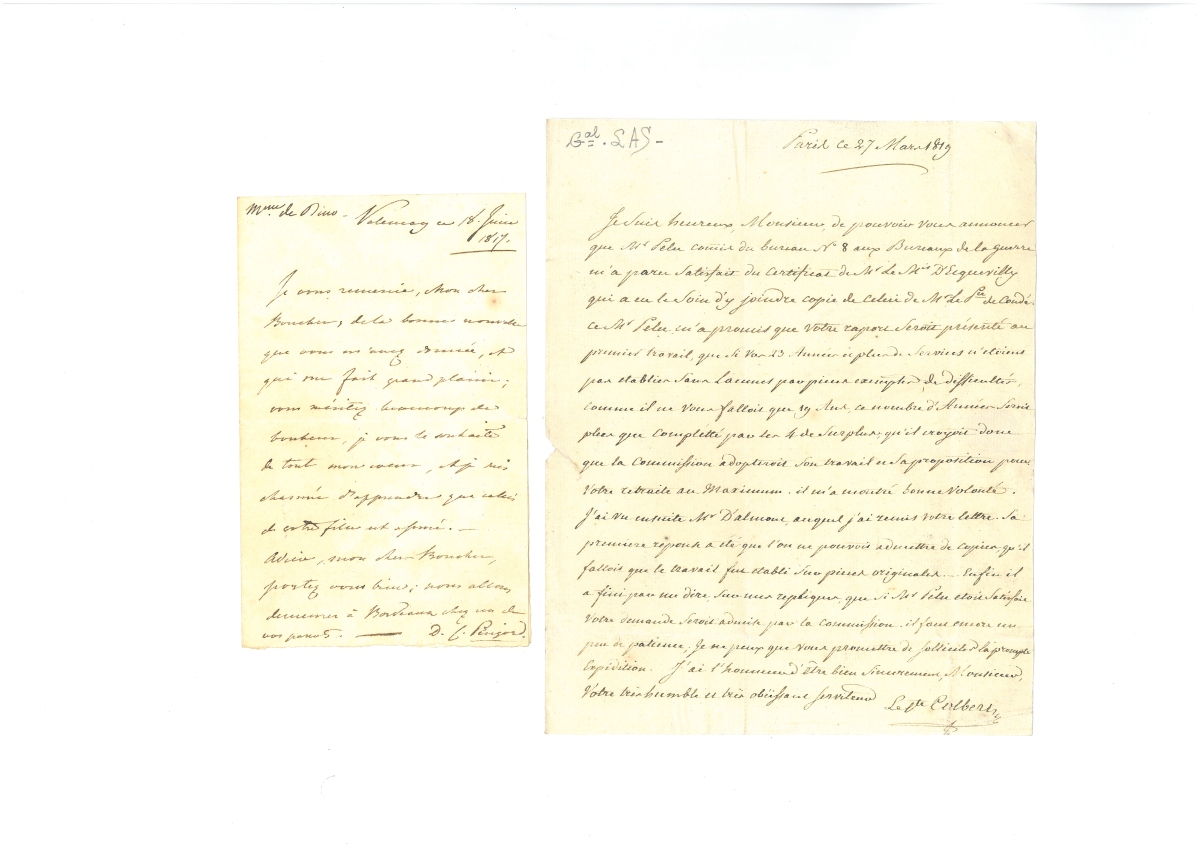 Mme de Dino -
Valençay ce 18. Juin
1817.
Je vous remercie, Mon cher
Boucher, de la bonne nouvelle
que vous m'avez donnée, et
qui me fait grand plaisir;
vous méritez beaucoup de
bonheur, je vous le souhaite
de tout mon coeur, et je suis
charmée d'apprendre que celui
de votre fille est assuré. —
Adieu, mon cher Boucher,
portez vous bien; nous allons
demeurer à Bordeaux chez un de
vos
D. C. Périgord.
Gal. LAS -
Paris ce 27 Mars 1819
Je suis heureux, Monsieur, de pouvoir vous annoncer
que Mr Pelu commis du bureau N° 8 aux Bureaux de la guerre
m'a paru satisfait du certificat de Mr Le Mis D'Ecquevilly
qui a eu le soin d'y joindre copie de celui de Mr Le Pce de Condé
ce Mr Pelu m'a promis que votre raport seroit présenté au
premier travail, que si vos 23 Années et plus de services n'etoient
pas etablies sans Lacunes par pieces exemptes de difficultés,
comme il ne vous falloit que 19 Ans, ce nombre d'Années seroit
plus que complétté par les 4 de surplus, qu'il croyoit donc
que la Commission adopteroit son travail et sa proposition pour
votre retraite au Maximum. il m'a montré bonne volonté.
J'ai vu ensuite Mr D'almont, auquel j'ai remis votre lettre. Sa
premiere réponse a été que l'on ne pouvoit admettre de copies qu'il
falloit que le travail fut etabli sur pieces originales... Enfin il
a fini par me dire, sur mes repliques, que si Mr Pelu etoit satisfait
votre demande seroit admise par la commission. il faut encore un
peu de patience, Je ne peux que vous promettre de solliciter la prompte
Expédition. J'ai l'honneur d'être bien sincerement, Monsieur,
Votre très humble et très obéissant serviteur
Le Cte Colbert